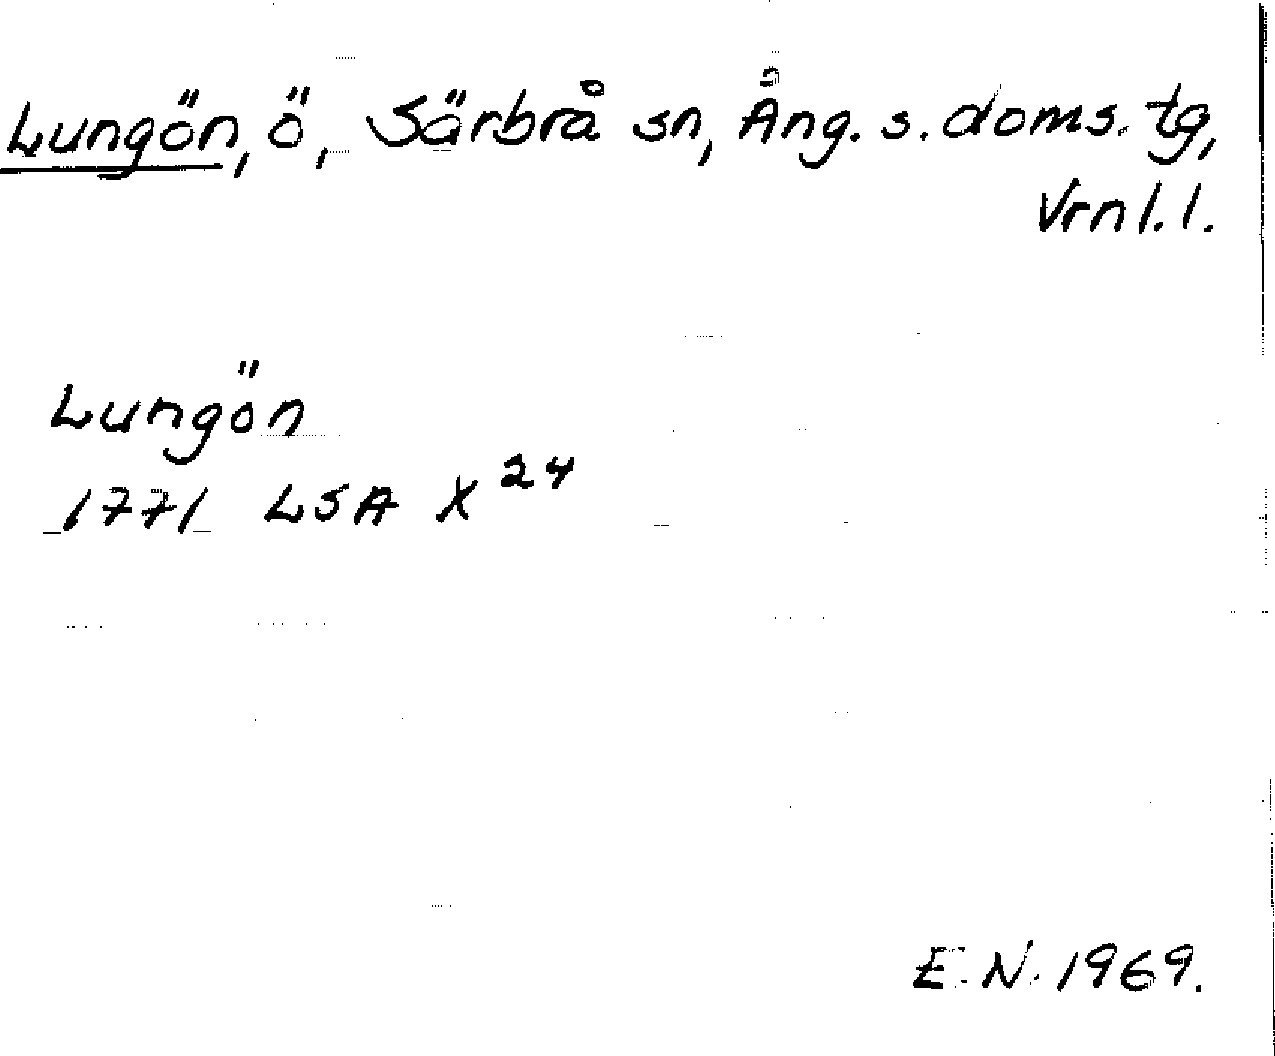 Lungön, ö, Särbrå sn, Ång. s. doms. tg,
Vrnl. l.
Lungön
1771 LSA X 24
E. N. 1969.